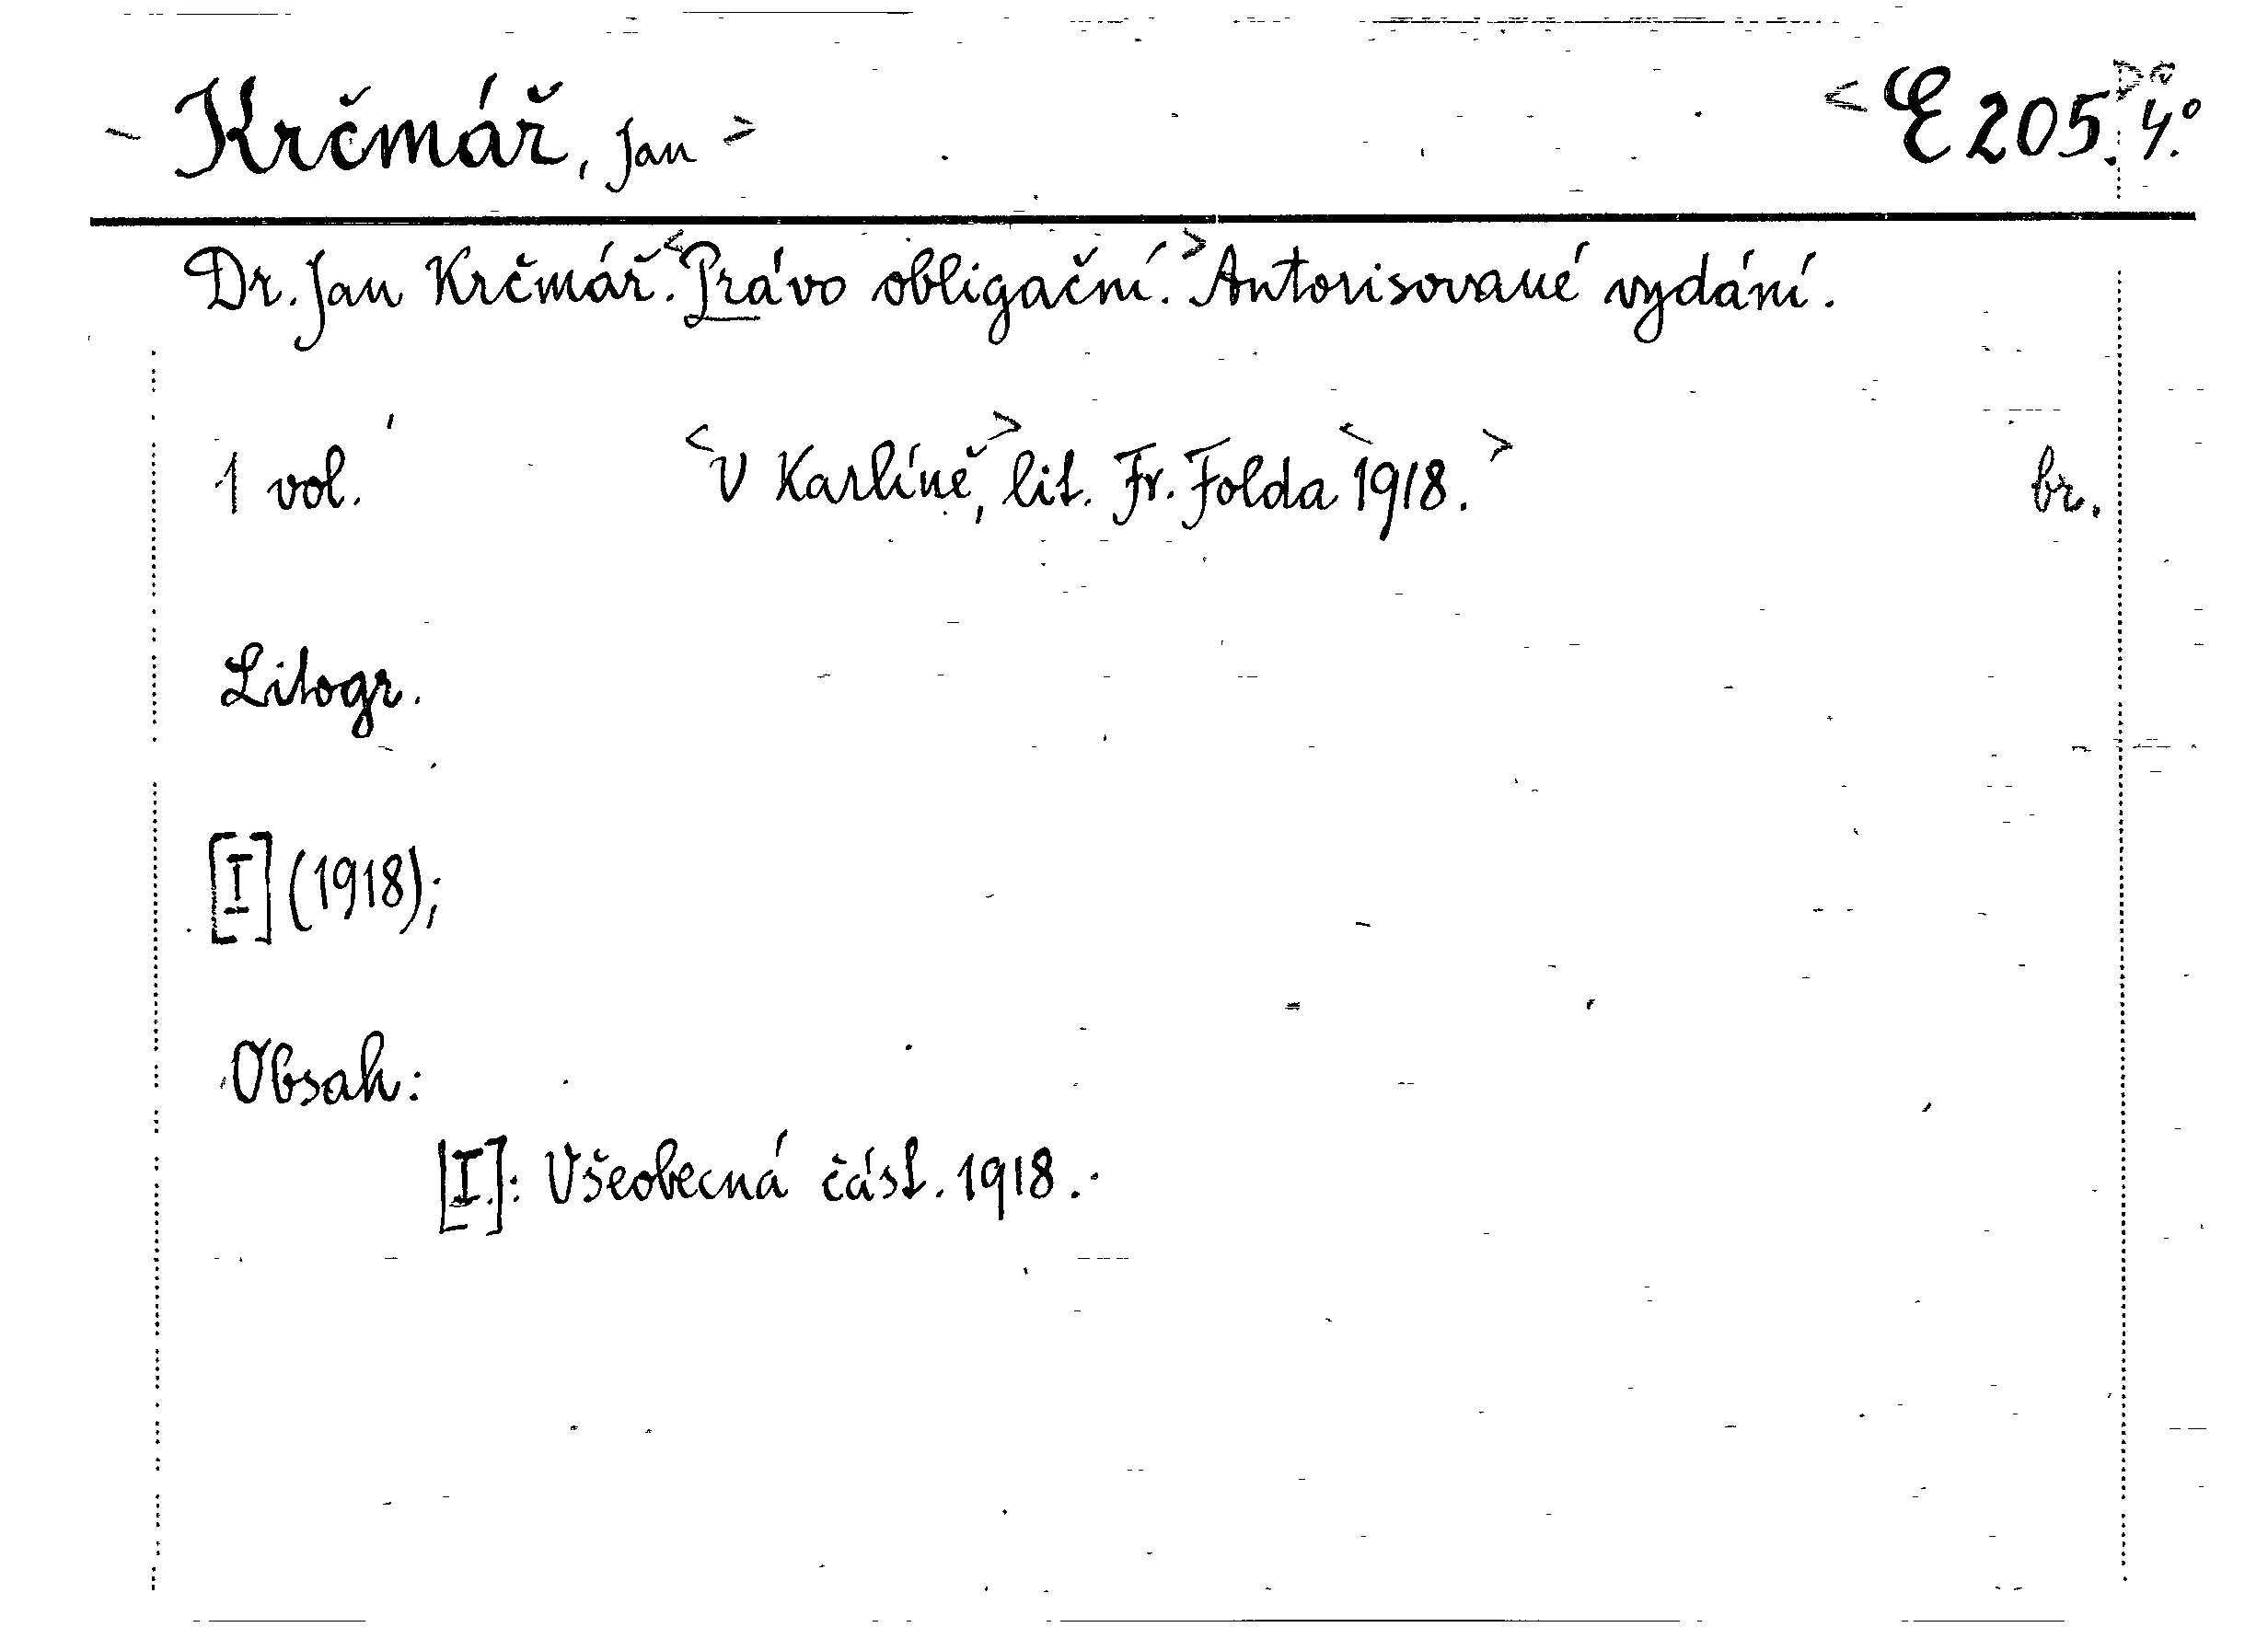 Krčmář, Jan > < E 205. 4.°
Dr. Jan Krčmář. <Právo obligační.> Autorisované vydání.
1 vol. <V Karlíně,> lit. Fr. Folda <1918.> br.
Litogr.
[I] (1918);
Obsah:
[I.]: Všeobecná část. 1918.